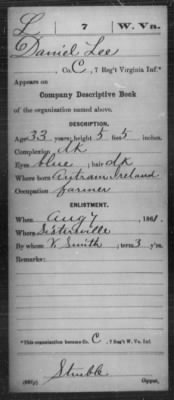 L 7 W. Va.
Daniel Lee
, Co. C, 7 Reg't Virginia Inf.*
Appears on
Company Descriptive Book
of the organization named above.
DESCRIPTION.
Age 33 years; height 5 feet 5 inches.
Complexion dk
Eyes blue; hair dk
Where born Antram Ireland
Occupation farmer
ENLISTMENT.
When Aug 7, 1861.
Where Sistersville
By whom V Smith; term 3 y'rs.
Remarks:
*This organization became Co. C, 7 Reg't W. Va. Inf.
Struble
Copyist.